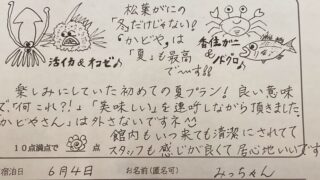 松葉がにの
「冬だけじゃない!
"かどや"は
「夏」も最高
で〜す!!
活イカ&オコゼ♪
香住ガニ
&
ノドグロ♪
楽しみにしていた初めての夏プラン!良い意味
で、「何これ?!」「美味しい」を連呼しながら頂きました。
「かどやさん」は外さないですネ
館内もいつ来ても清潔にされてて
スタッフも感じが良くて居心地いいです
10点満点で 点
宿泊日 6月4日 お名前(匿名可) みっちゃん